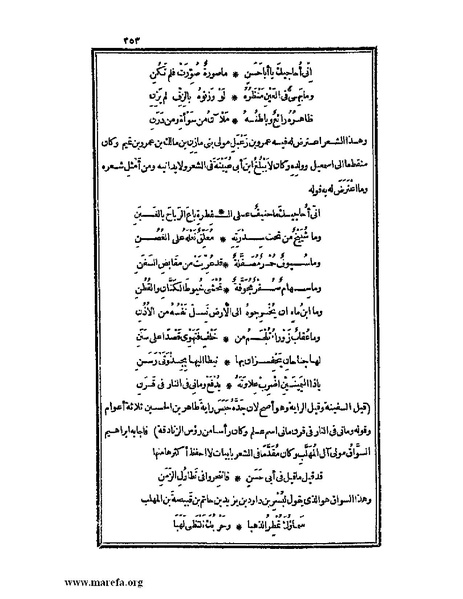 ٣٥٣
انى أحاجيك ياأباحسن * ماصورة صورت فلم تكن
ومابهى فى العين منظره * لو وزنوه بالزف لم يزن
ظاهره رائع وباطنه * ملآن من سوأة ومن درن
وهذا الشعر اعترض له فيه عمرو بن زعبل مولى بنى مازن بن مالك بن عمرو بن تميم وكان
منقطعا الى اسمعيل وولده وكان لا يبلغ ابن أبى عيينة فى الشعر ولايدانيه ومن أمثل شعره
وما اعترض له به قوله
انى أحاجيك ماحنيف على الـ فطرة باع الرباح بالغبن
وما شيينخ من تحت سدرته * معلق نعله على الغصن
وماسيوف حمر مصقلة * قد عريت من مقابض السفن
وماسهام صفر مجوفة * تحشى خيوط الكتان والقطن
وما ابن ماء ان يخرجوه الى الأرض تسل نفسه من الأذن
وماعقاب زوراء تلحم من * خلف فتهوى قصدا على سنن
لها جناحان يحفزان بها * نيطا اليها بجذوتى رسن
ياذا اليمينين اضرب علاوته * يدفع ومانى فى النار فى قرن
(قيل السفينة وقيل الراية وهو أصح لان جده حبس راية طاهر بن الحسين ثلاثة أعوام
وقوله ومانى فى النار فى قرن مانى اسم علم وكان رأسا من رؤس الزنادقة) فاجابه ابراهيم
السواق مولى آل المهلب وكان مقدما فى الشعر بابيات لا أحفظ أكثرها منها
قد قيل ماقيل فى أبى حسن * فانتحروا فى تطاول الزمن
وهذا السواق هو الذى يقول لبشر بن داود بن يزيد بن حاتم بن قبيصة بن المهلب
سماؤك تمطر الذهبا * وحربك تلتظى لهبا
www.marefa.org